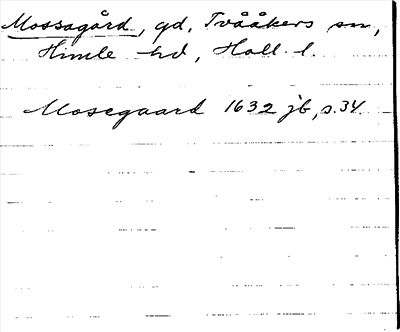 Mossagård, gd, Tvååkers sn,
Himle hd, Hall. l.
Mosegaard 1632 jb, s. 34.